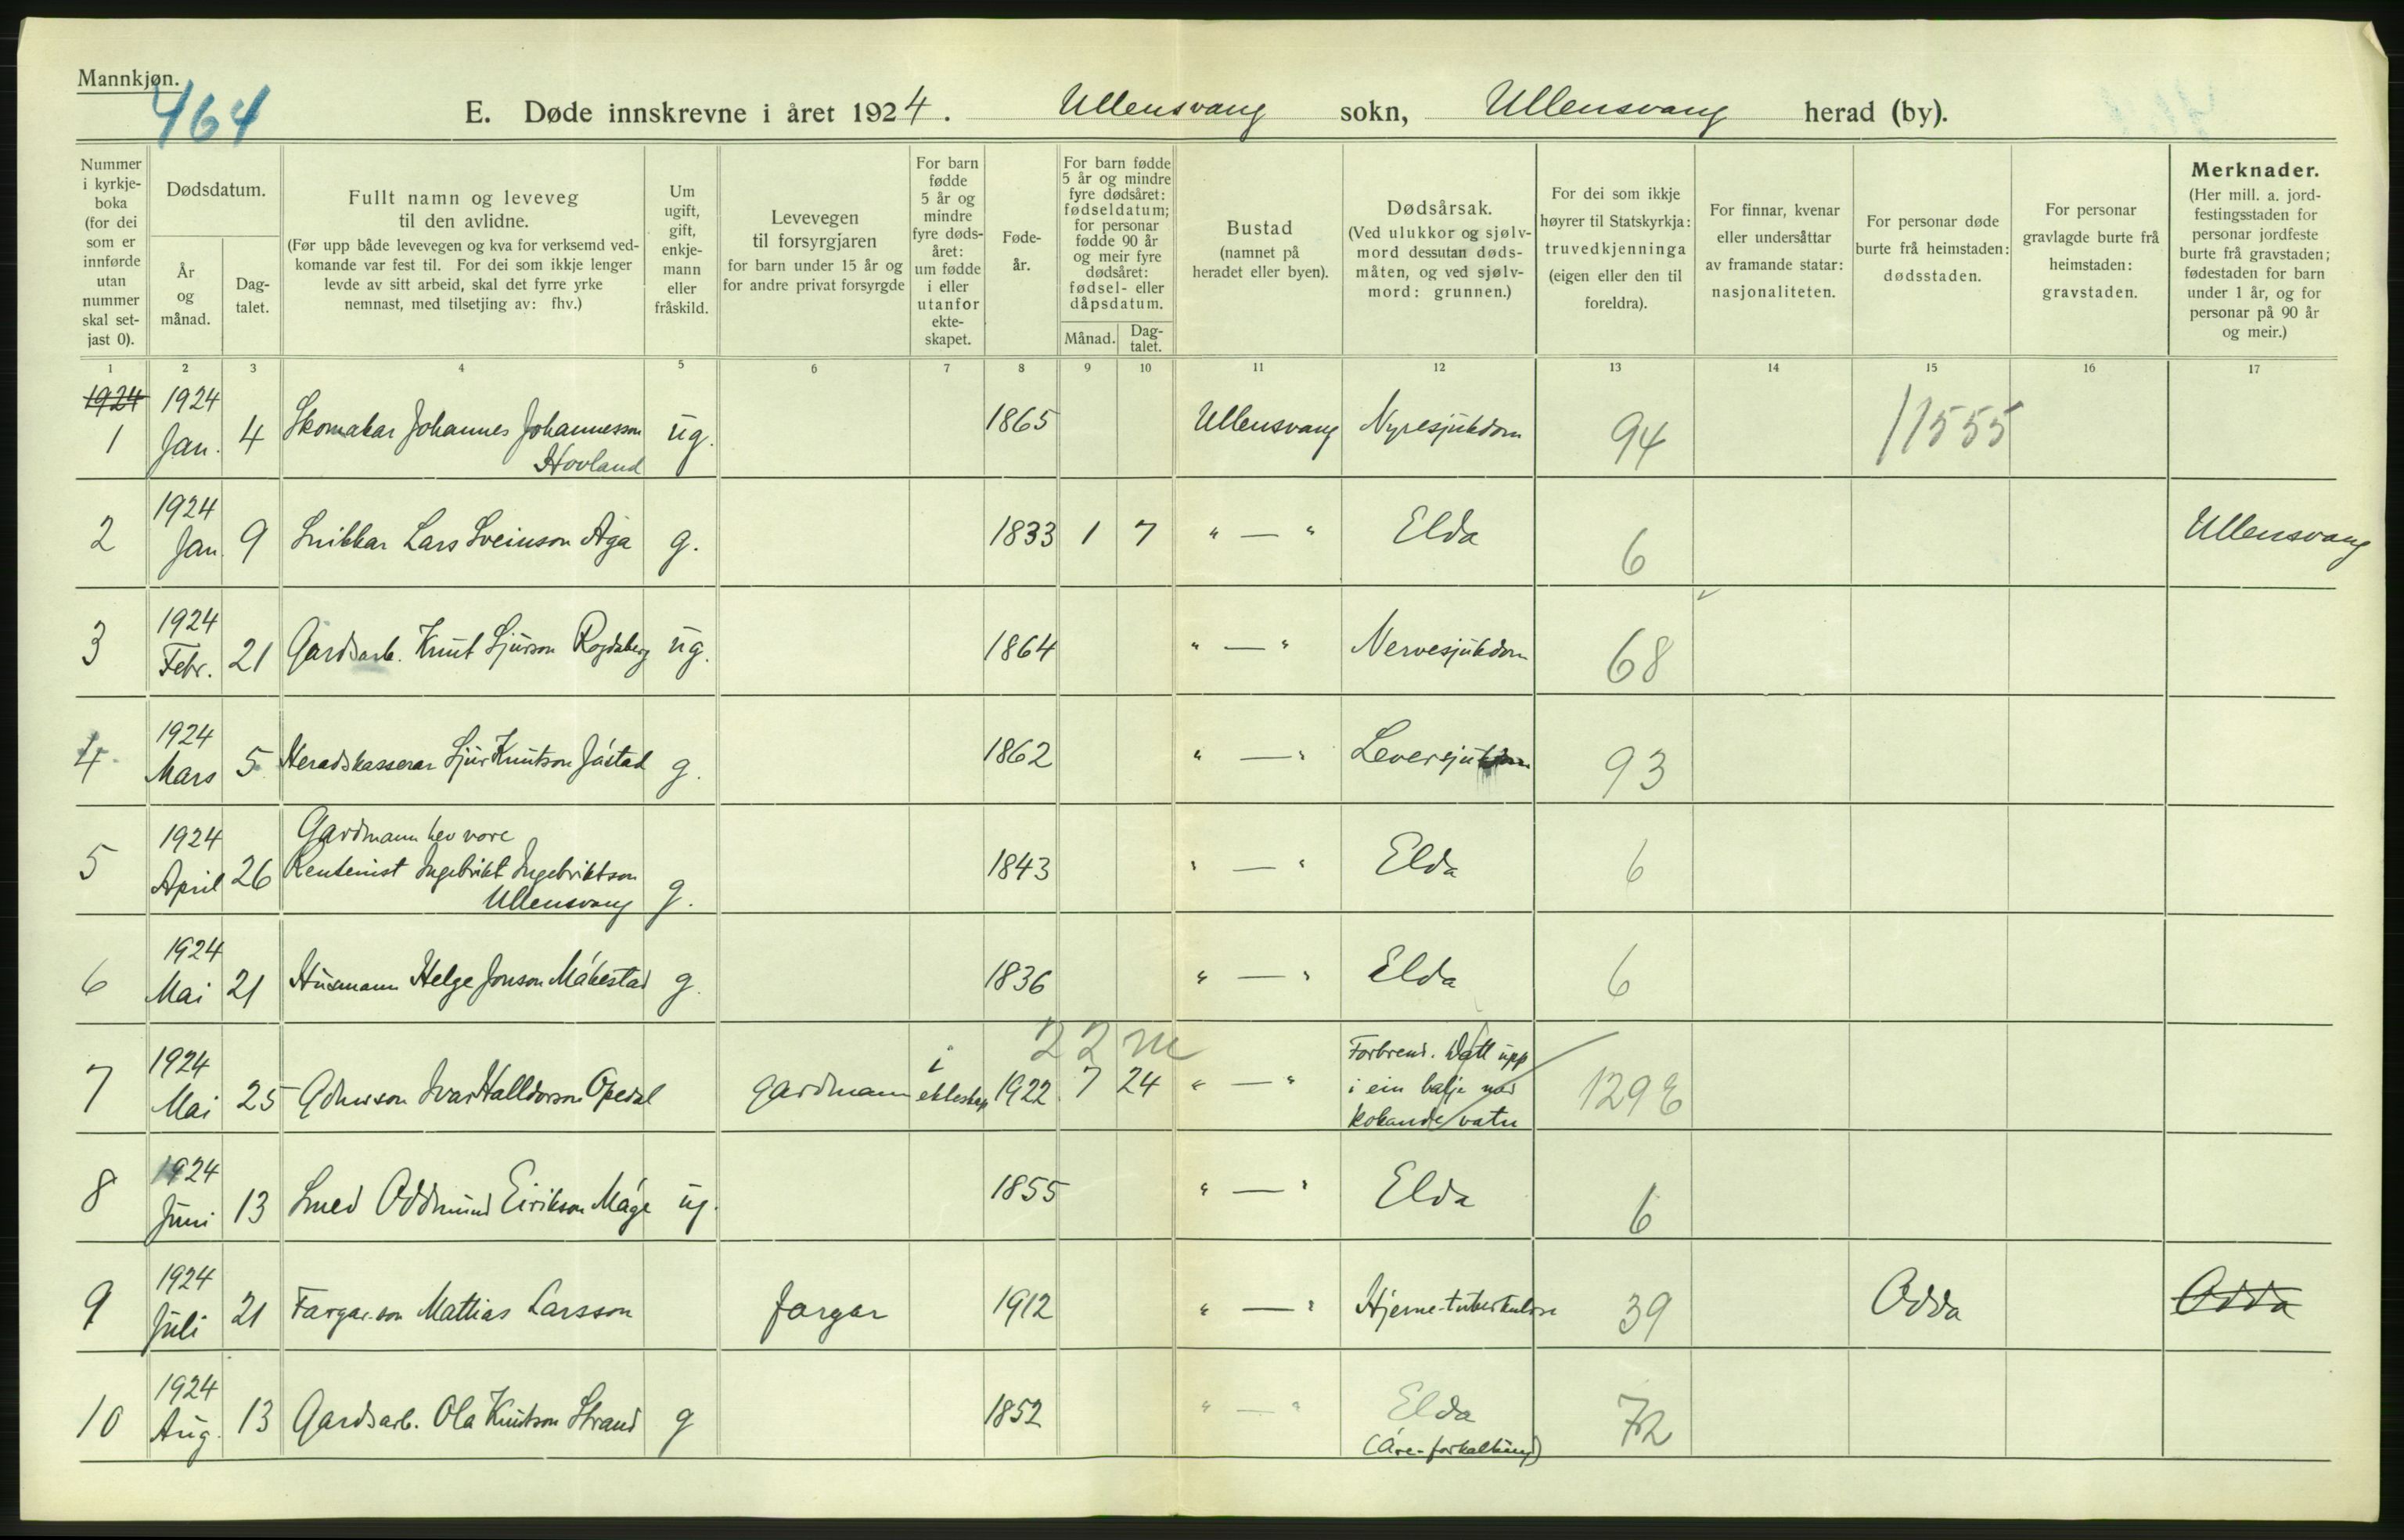 Mannkjøn.
464
E. Døde innskrevne i året 1924. Ullensvang sokn, Ullensvang herad (by).
Nummer i kyrkje-boka (for dei som er innførde utan nummer skal set-jast 0).
Dødsdatum.
År og månad.
Dag-talet.
Fullt namn og leveveg til den avlidne.
(Før upp både levevegen og kva for verksemd ved-komande var fest til. For dei som ikkje lenger levde av sitt arbeid, skal det fyrre yrke nemnast, med tilsetjing av: fhv.)
Um ugift, gift, enkje-mann eller fråskild.
Levevegen til forsyrgjaren for barn under 15 år og for andre privat forsyrgde
For barn fødde 5 år og mindre fyre døds-året: um fødde i eller utanfor ekte-skapet.
Føde-år.
For barn fødde 5 år og mindre fyre dødsåret: fødseldatum; for personar fødde 90 år og meir fyre dødsåret: fødsel- eller dåpsdatum.
Månad.
Dag-talet.
Bustad (namnet på heradet eller byen).
Dødsårsak.
(Ved ulukkor og sjølv-mord dessutan døds-måten, og ved sjølv-mord: grunnen.)
For dei som ikkje høyrer til Statskyrkja: truvedkjenninga (eigen eller den til foreldra).
For finnar, kvenar eller undersåttar av framande statar: nasjonaliteten.
For personar døde burte frå heimstaden: dødsstaden.
For personar gravlagde burte frå heimstaden: gravstaden.
Merknader.
(Her mill. a. jord-festingsstaden for personar jordfeste burte frå gravstaden; fødestaden for barn under 1 år, og for personar på 90 år og meir.)
1 2 3 4 5 6 7 8 9 10 11 12 13 14 15 16 17
1924
1 1924 Jan. 4 Skomakar Johannes Johannesson Hovland ug. 1865 Ullensvang Nyresjukdom 94 11555
2 1924 Jan. 9 Snikkar Lars Sveinson Aga g. 1833 1 7 " — " Elda 6 Ullensvang
3 1924 Febr. 21 Gardsarb. Knut Sjurson Rogdaberg ug. 1864 " — " Nervesjukdom 68
4 1924 Mars 5 Heradskasserar Sjur Knutson Jåstad g. 1862 " — " Leversjukdom 93
5 1924 April 26 Gardmann hev vore Rentenist Ingebrikt Ingebriktson Ullensvang g. 1843 " — " Elda 6
6 1924 Mai 21 Husmann Helge Jonson Måkestad g. 1836 " — " Elda 6
22 m
7 1924 Mai 25 Gdmsson Ivar Halldorson Opedal gardmann i ekteskap 1922 7 24 " — " Forbrend. Datt upp i ein balje med kokande vatn 129 E
8 1924 Juni 13 Smed Oddmund Eirikson Måge ug. 1855 " — " Elda 6
9 1924 Juli 21 Fargar-son Mattias Larsson fargar 1912 " — " Hjerne-tuberkulose 39 Odda Odda
10 1924 Aug. 13 Gardsarb. Ola Knutson Strand g 1852 " — " Elda (Åre-forkalkning) 72